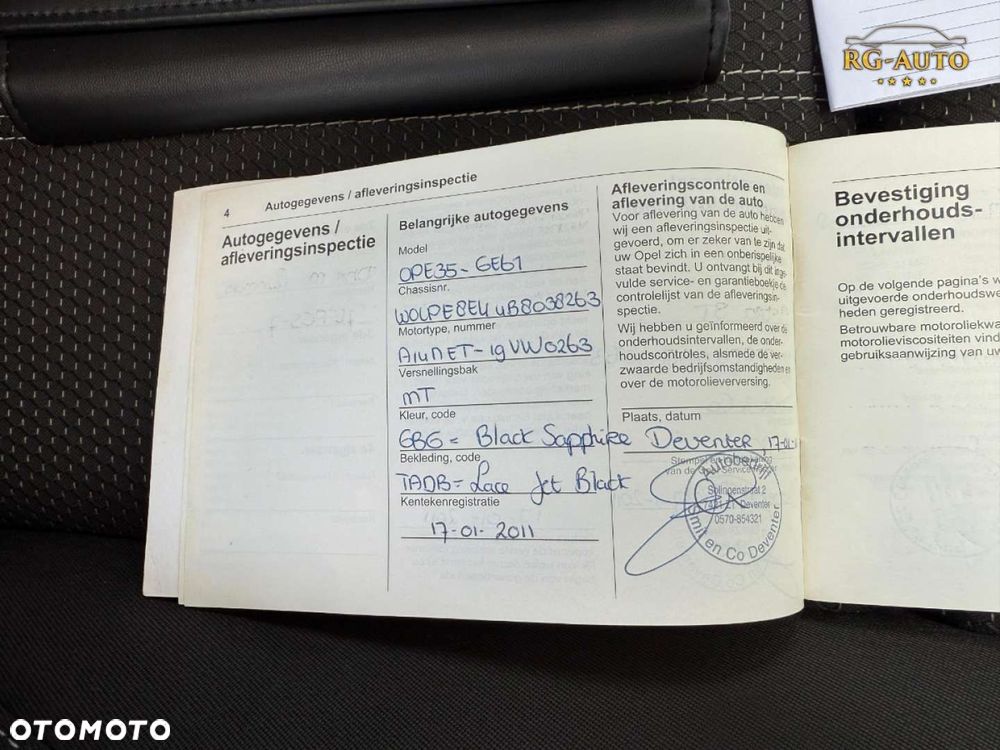 RG-AUTO
4
Autogegevens / afleveringsinspectie
Autogegevens /
afleveringsinspectie
Belangrijke autogegevens
Model
OPE35-GE61
Chassisnr.
W0LPE8EU4B8038263
Motortype, nummer
A14NET-19VW0263
Versnellingsbak
MT
Kleur, code
GBG = Black Sapphire
Bekleding, code
TADB= Lace Jet Black
Kentekenregistratie
17-01-2011
Afleveringscontrole en
aflevering van de auto
Voor aflevering van de auto hebben
wij een afleveringsinspectie uit-
gevoerd, om er zeker van te zijn dat
uw Opel zich in een onberispelijke
staat bevindt. U ontvangt bij dit inge-
vulde service- en garantieboekje de
controlelijst van de afleveringsin-
spectie.
Wij hebben u geïnformeerd over de
onderhoudsintervallen, de onder-
houdscontroles, alsmede de ver-
zwaarde bedrijfsomstandigheden en
over de motorolieverversing.
Plaats, datum
Deventer 17-01-1
Solingenstraat 2
Deventer
0570-854321
en Co Deventer
Bevestiging
onderhouds-
intervallen
Op de volgende pagina's w
uitgevoerde onderhoudswe
heden geregistreerd.
Betrouwbare motoroliekwa
motorolieviscositeiten vind
gebruiksaanwijzing van uw
OTOMOTO